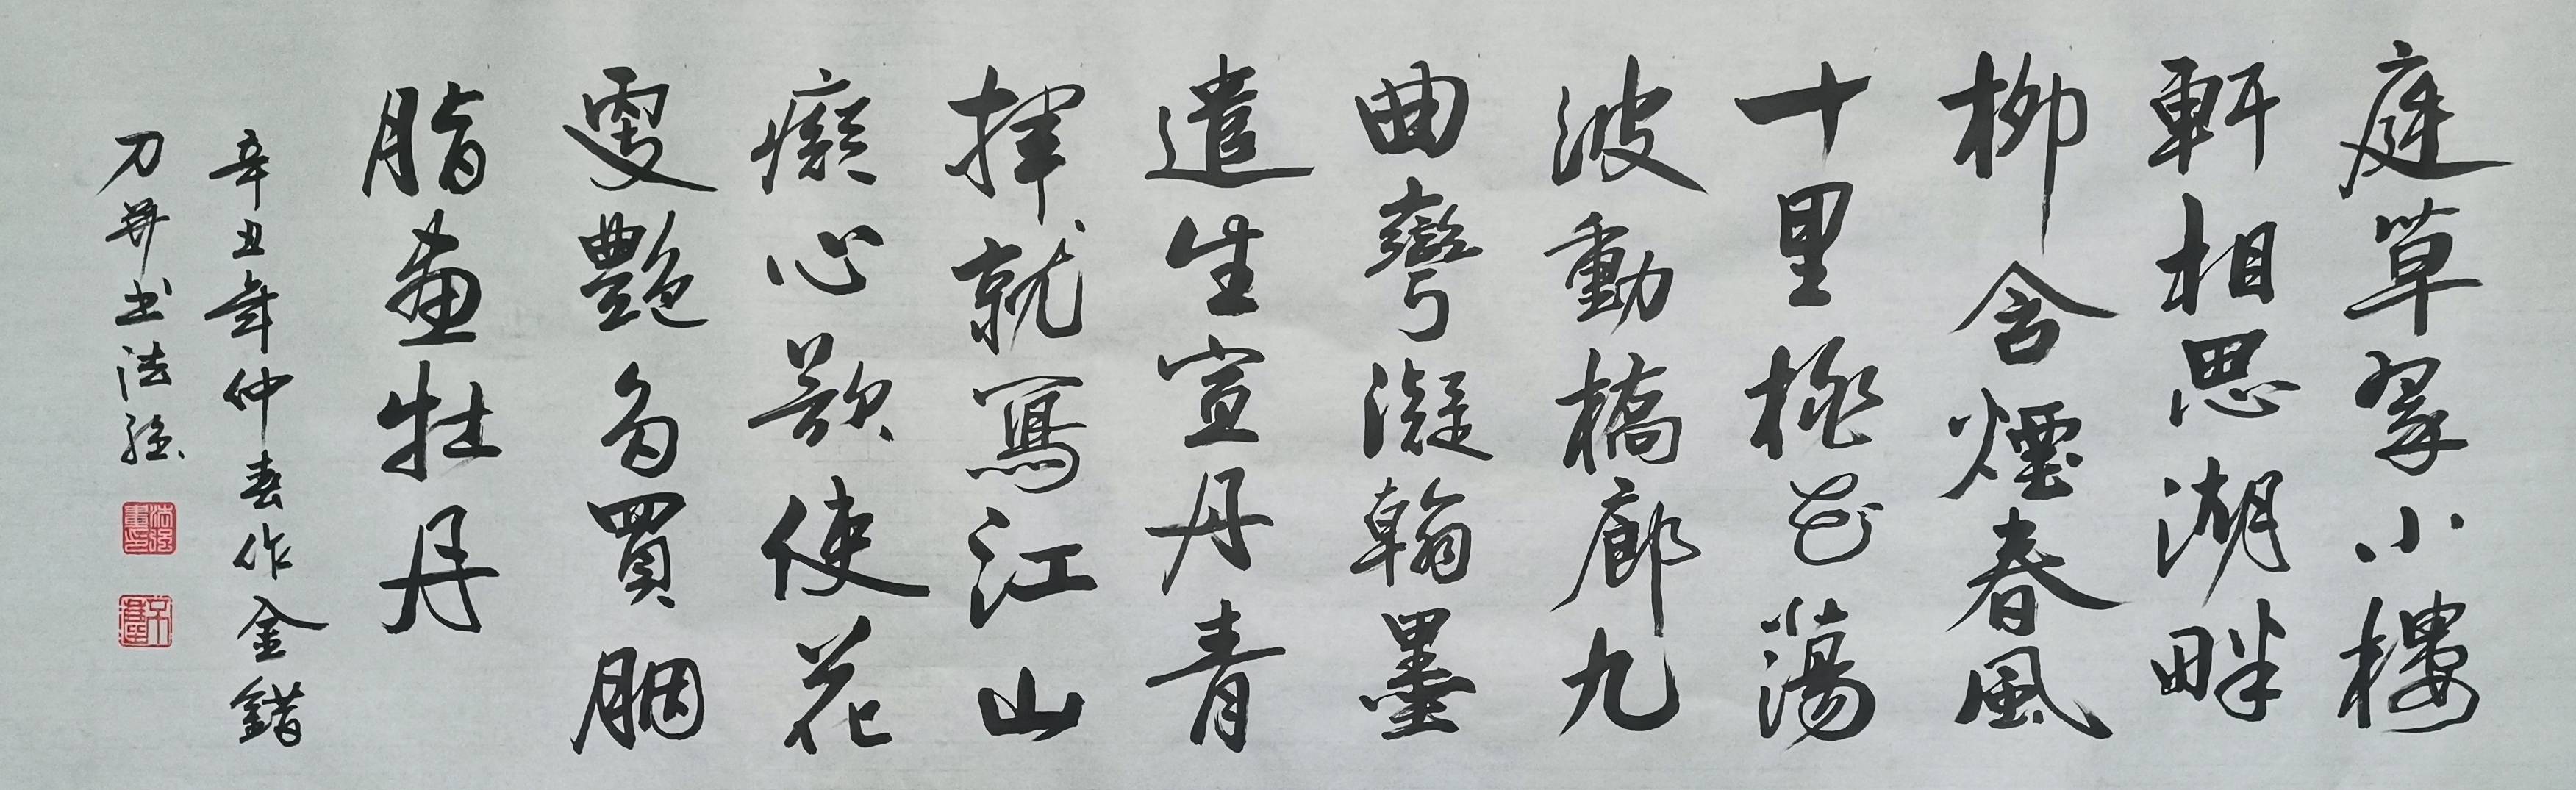 庭草翠小樓
軒相思湖畔
柳含煙春風
十里桃花蕩
波動橋廊九
曲彎凝翰墨
遣生宣丹青
揮就寫江山
癡心歎使花
更艷多買胭
脂畫牡丹
辛丑年仲春作金錯
刀并书法强